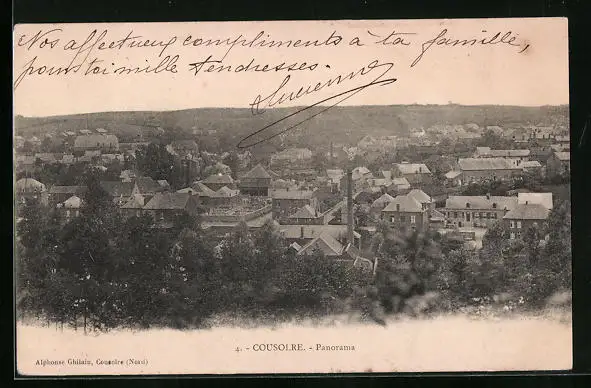 Nos affectueux compliments à ta famille,
pour toi mille tendresses.
Lucienne
4. - COUSOLRE. - Panorama
Alphonse Ghilain, Cousolre (Nord)